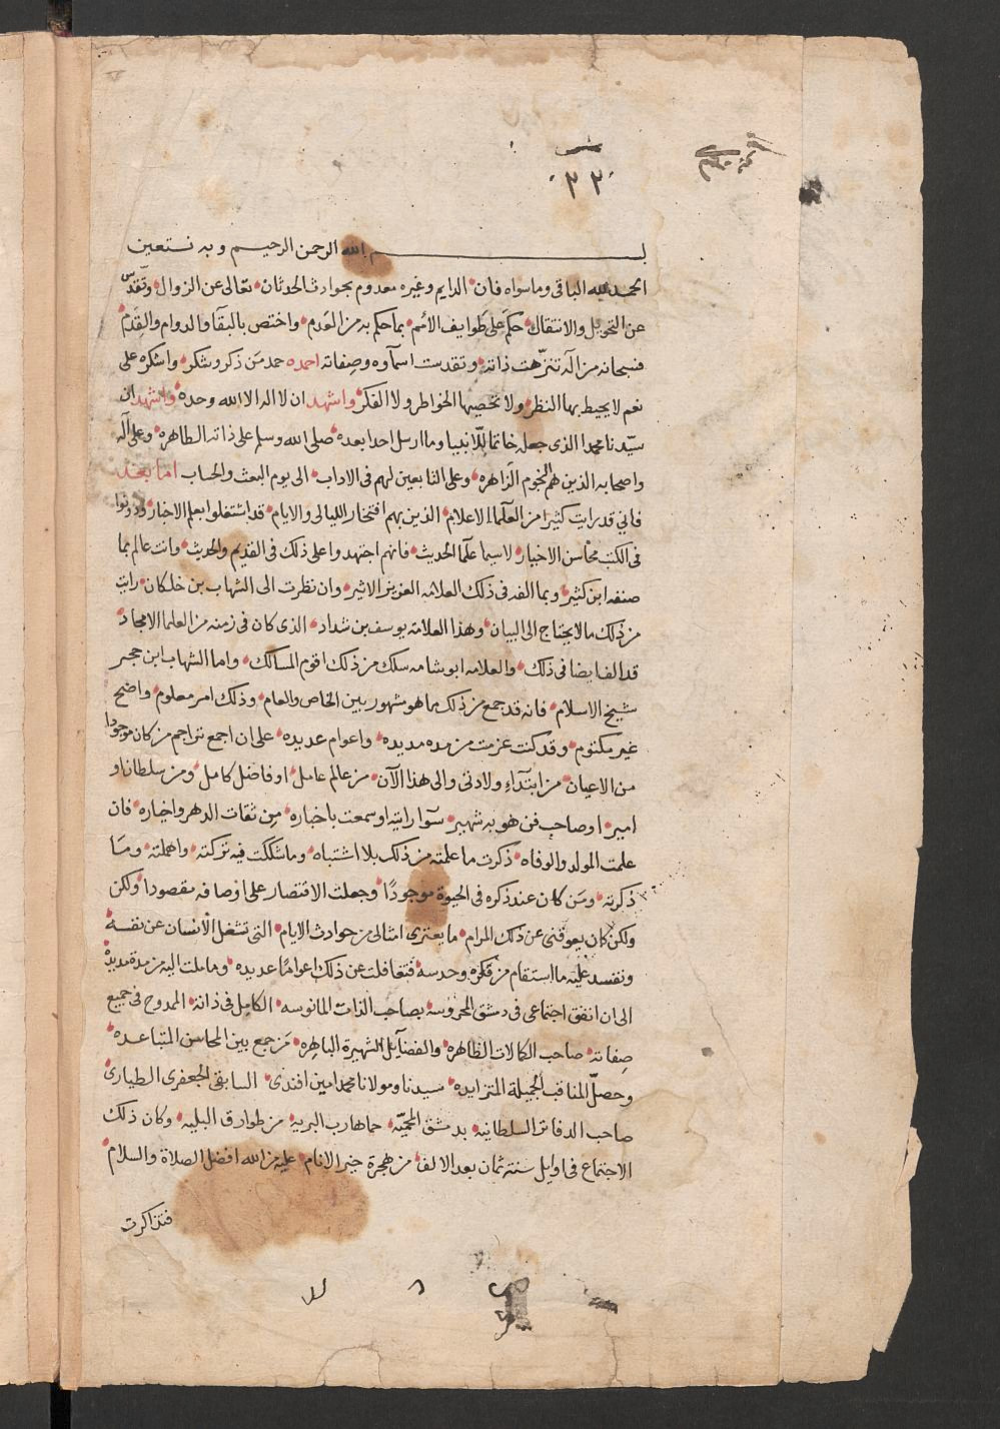 ٣٢٠
بسم الله الرحمن الرحيم وبه نستعين
الحمد لله الباقى وما سواه فان الدايم وغيره معدوم بحوادث الحدثان تعالى عن الزوال وتقدس
عن التحويل والانتقال حكم على طوايف الامم بما حكم به من العدم واختص بالبقا والدوام والقدم
فسبحانه من اله تنزهت ذاته وتقدست اسماوه وصفاته احمده حمد من ذكر وشكر واشكره على
نعم لا يحيط بها النظر ولا تحصيها الخواطر ولا الفكر واشهد ان لا اله الا الله وحده واشهد ان
سيدنا محمدا الذى جعله خاتما للانبيا وما ارسل احدا بعده صلى الله وسلم على ذاته الطاهره وعلى آله
واصحابه الذين هم النجوم الزاهره وعلى التابعين لهم فى الاداب الى يوم البعث والحساب اما بعد
فانى قد رايت كثيرا من العلماء الاعلام الذين بهم افتخار الليالى والايام قد اشتغلوا بعلم الاخبار ودونوا
فى الكتب محاسن الاخيار لا سيما علما الحديث فانهم اجتهدوا على ذلك فى القديم والحديث وانت عالم بما
صنفه ابن كثير وبما الفه فى ذلك العلامه العزيز الاثير وان نظرت الى الشهاب بن خلكان رايت
من ذلك ما لا يحتاج الى البيان وهذا العلامه يوسف بن شداد الذى كان فى زمنه من العلما الامجاد
قد الف ايضا فى ذلك والعلامه ابو شامه سلك من ذلك اقوم المسالك واما الشهاب ابن حجر
شيخ الاسلام فانه قد جمع من ذلك ما هو مشهور بين الخاص والعام وذلك امر معلوم واضح
غير مكتوم وقد كنت عزمت من مده مديده واعوام عديده على ان اجمع تراجم من كان موجودا
من الاعيان من ابتداء ولادتى والى هذا الآن من عالم عامل او فاضل كامل ومن سلطان او
امير او صاحب فن هو به شهير سوا رايته او سمعت باخباره من ثقات الدهر واخياره فان
علمت المولد والوفاه ذكرت ما علمته من ذلك بلا اشتباه وما شككت فيه تركته واهملته وما
ذكرته ومن كان عند ذكره فى الحيوة موجودا وجعلت الاقتصار على اوصافه مقصودا ولكن
ولكن كان يعوقنى عن ذلك المرام ما يعترى امثالى من حوادث الايام التى تشغل الانسان عن نفسه
وتفسد عليه ما استقام من فكره وحدسه فتغافلت عن ذلك اعواما عديده وما ملت اليه من مدة مديدة
الى ان اتفق اجتماعى فى دمشق المحروسه بصاحب الذات المانوسه الكامل فى ذاته الممدوح فى جميع
صفاته صاحب الكمالات الظاهره والفضايل الشهيرة الباهره من جمع بين المحاسن المتباعده
وحصل المناقب الجميلة المتزايده سيدنا ومولانا محمد امين افندى السابقى الجعفرى الطيارى
صاحب الدفاتر السلطانيه بدمشق المحميه حماها رب البريه من طوارق البليه وكان ذلك
الاجتماع فى اوايل سنة ثمان بعد الالف من هجرة خير الانام عليه من الله افضل الصلاة والسلام
فتذاكرت